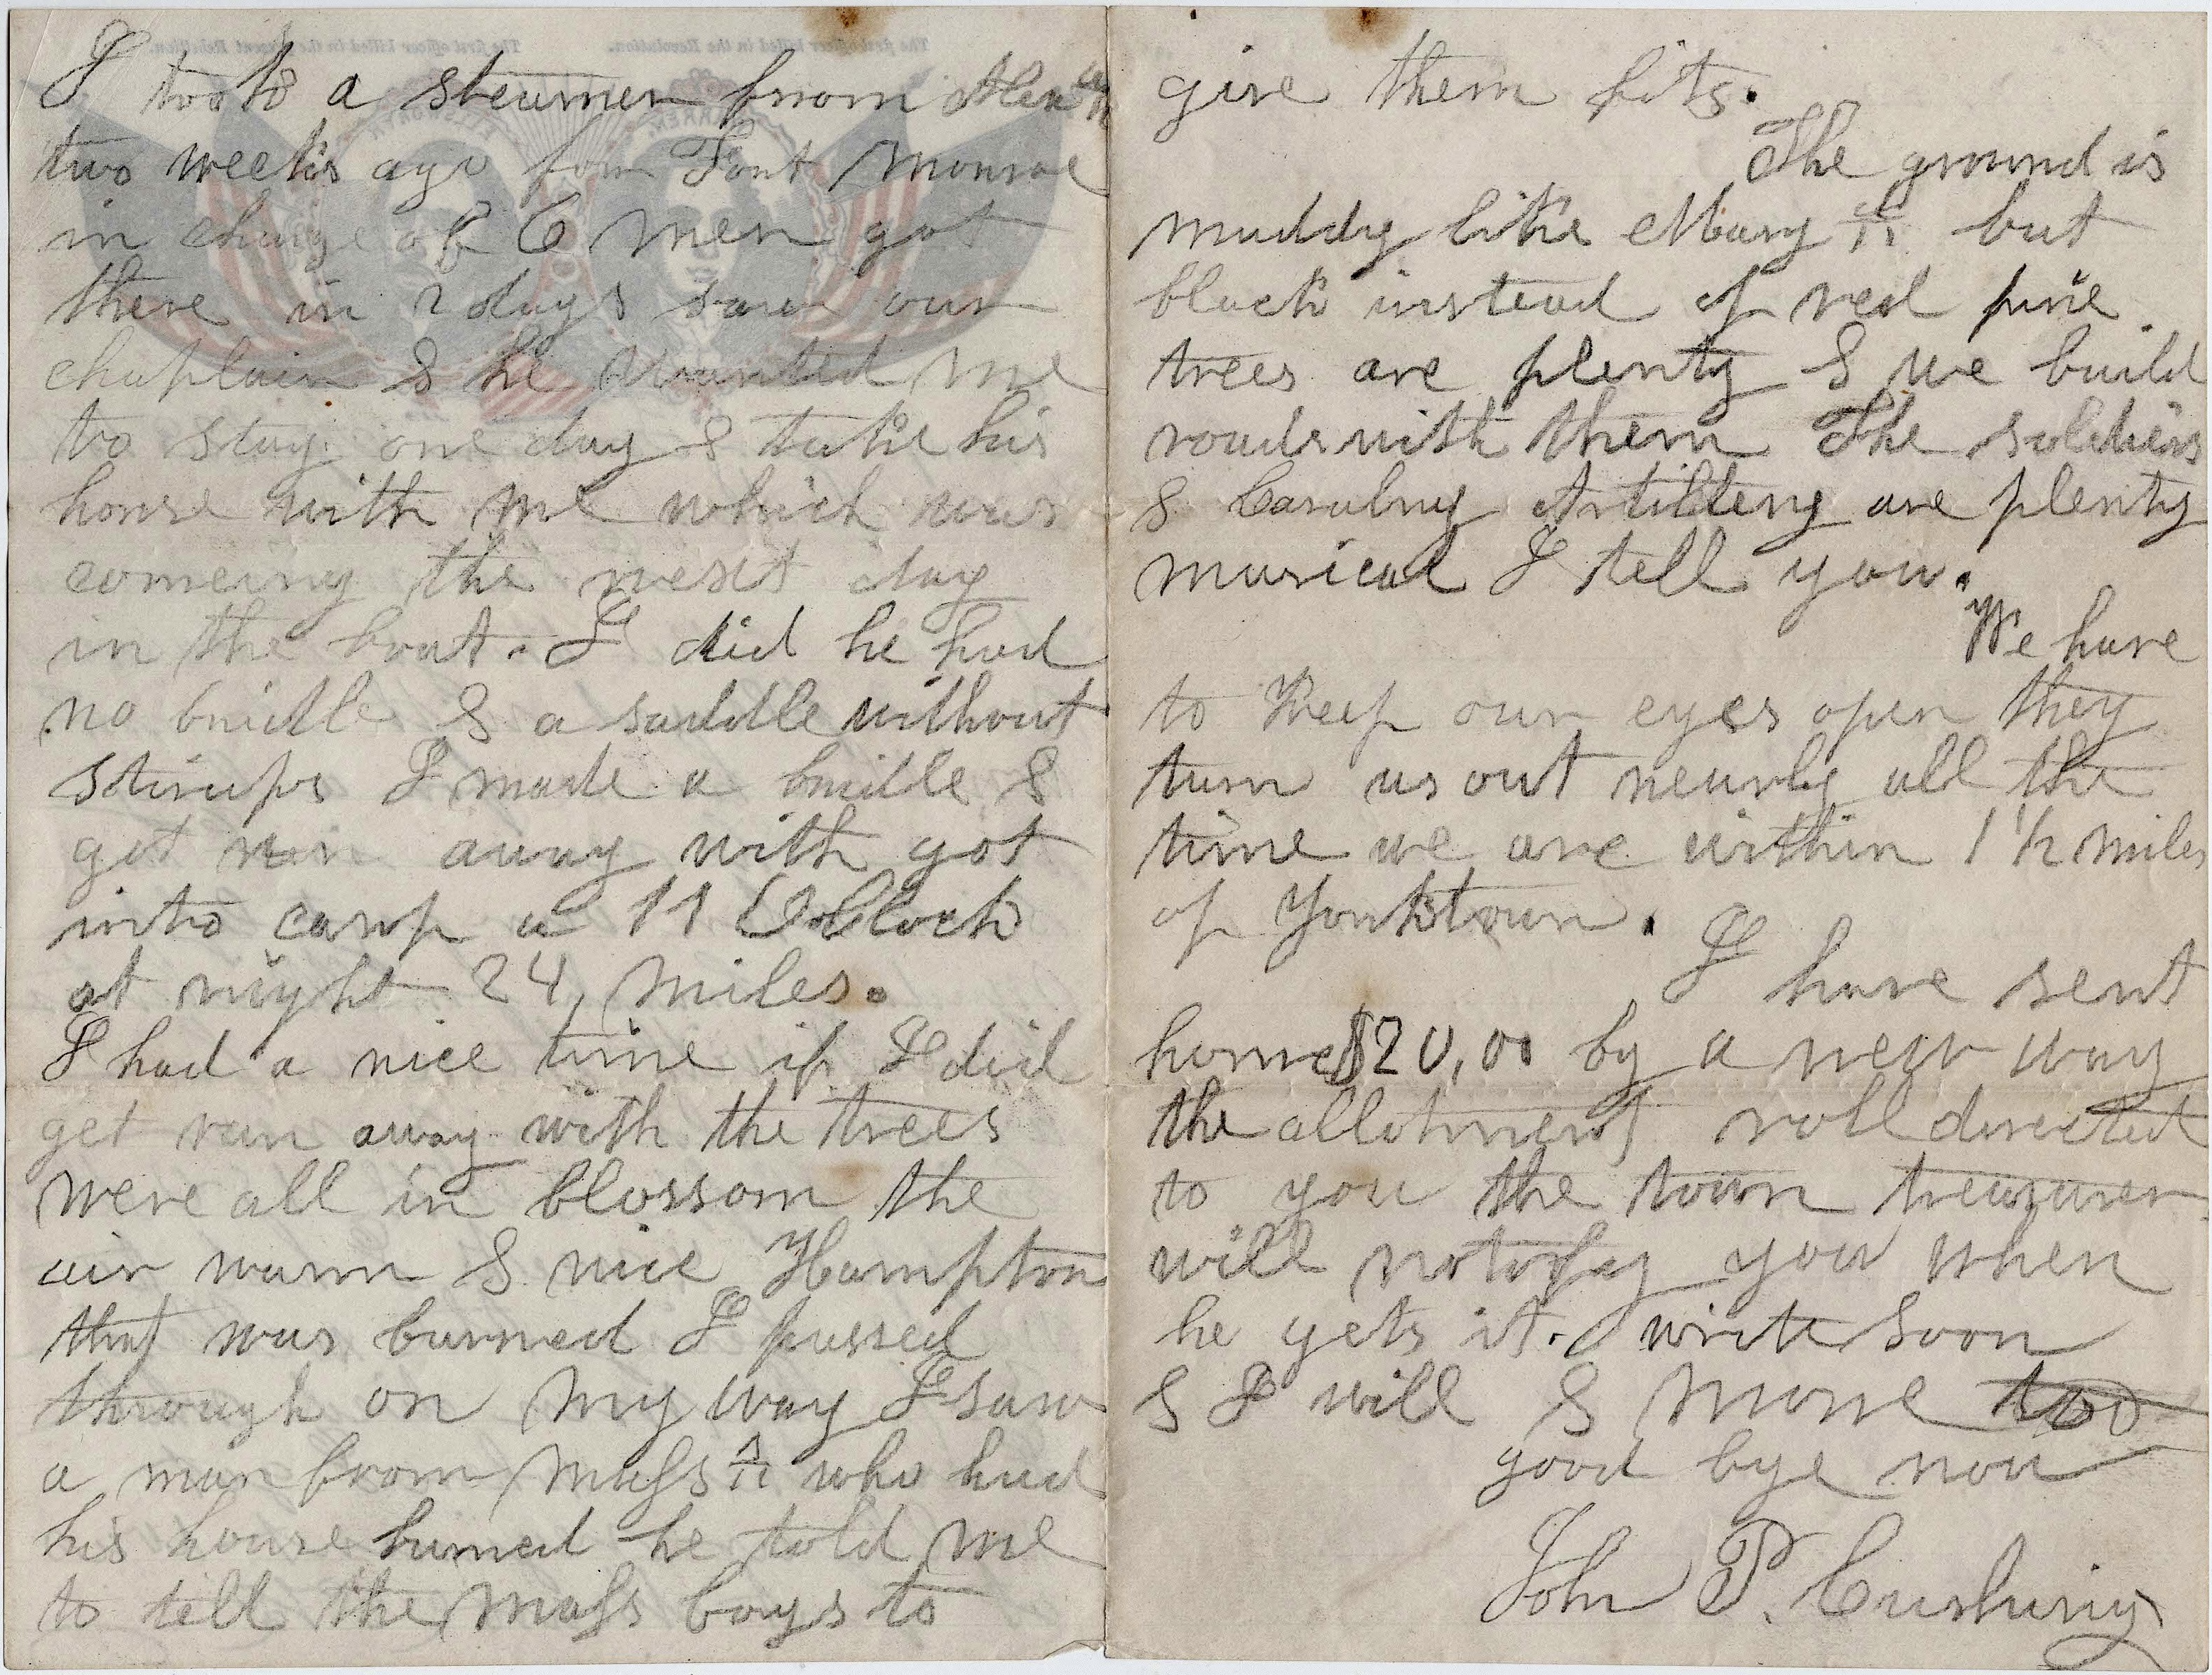 I took a steamer from Alexa
two weeks ago for Fort Monroe
in charge of 6 men got
there in 2 days saw our
chaplain & he wanted me
to stay one day & take his
horse with me which was
comeing the next day
in the boat. I did he had
no bridle & a saddle without
stirups I made a bridle &
got run away with got
into camp a 11 O Clock
at night 24 miles.
I had a nice time if I did
get run away with the trees
were all in blossom the
air warm & nice Hampton
that was burned I passed
through on my way I saw
a man from Mass who had
his house burned he told me
to tell the Mass boys to
give them fits.
The ground is
muddy like Mary but
black instead of red pine
trees are plenty & we build
roads with them The soldiers
& Cavalry Artillery are plenty
musical I tell you.
We have
to Keep our eyes open they
turn us out nearly all the
time we are within 1 1/2 miles
of Yorktown.
I have sent
home $20,00 by a new way
the allotment roll directed
to you the town treasurer
will notofay you when
he gets it. write soon
& I will & more too
good bye now
John P. Cushing
The first officer killed in the Revolution.
The first officer killed in the present Rebellion.
ELLSWORTH
WARREN